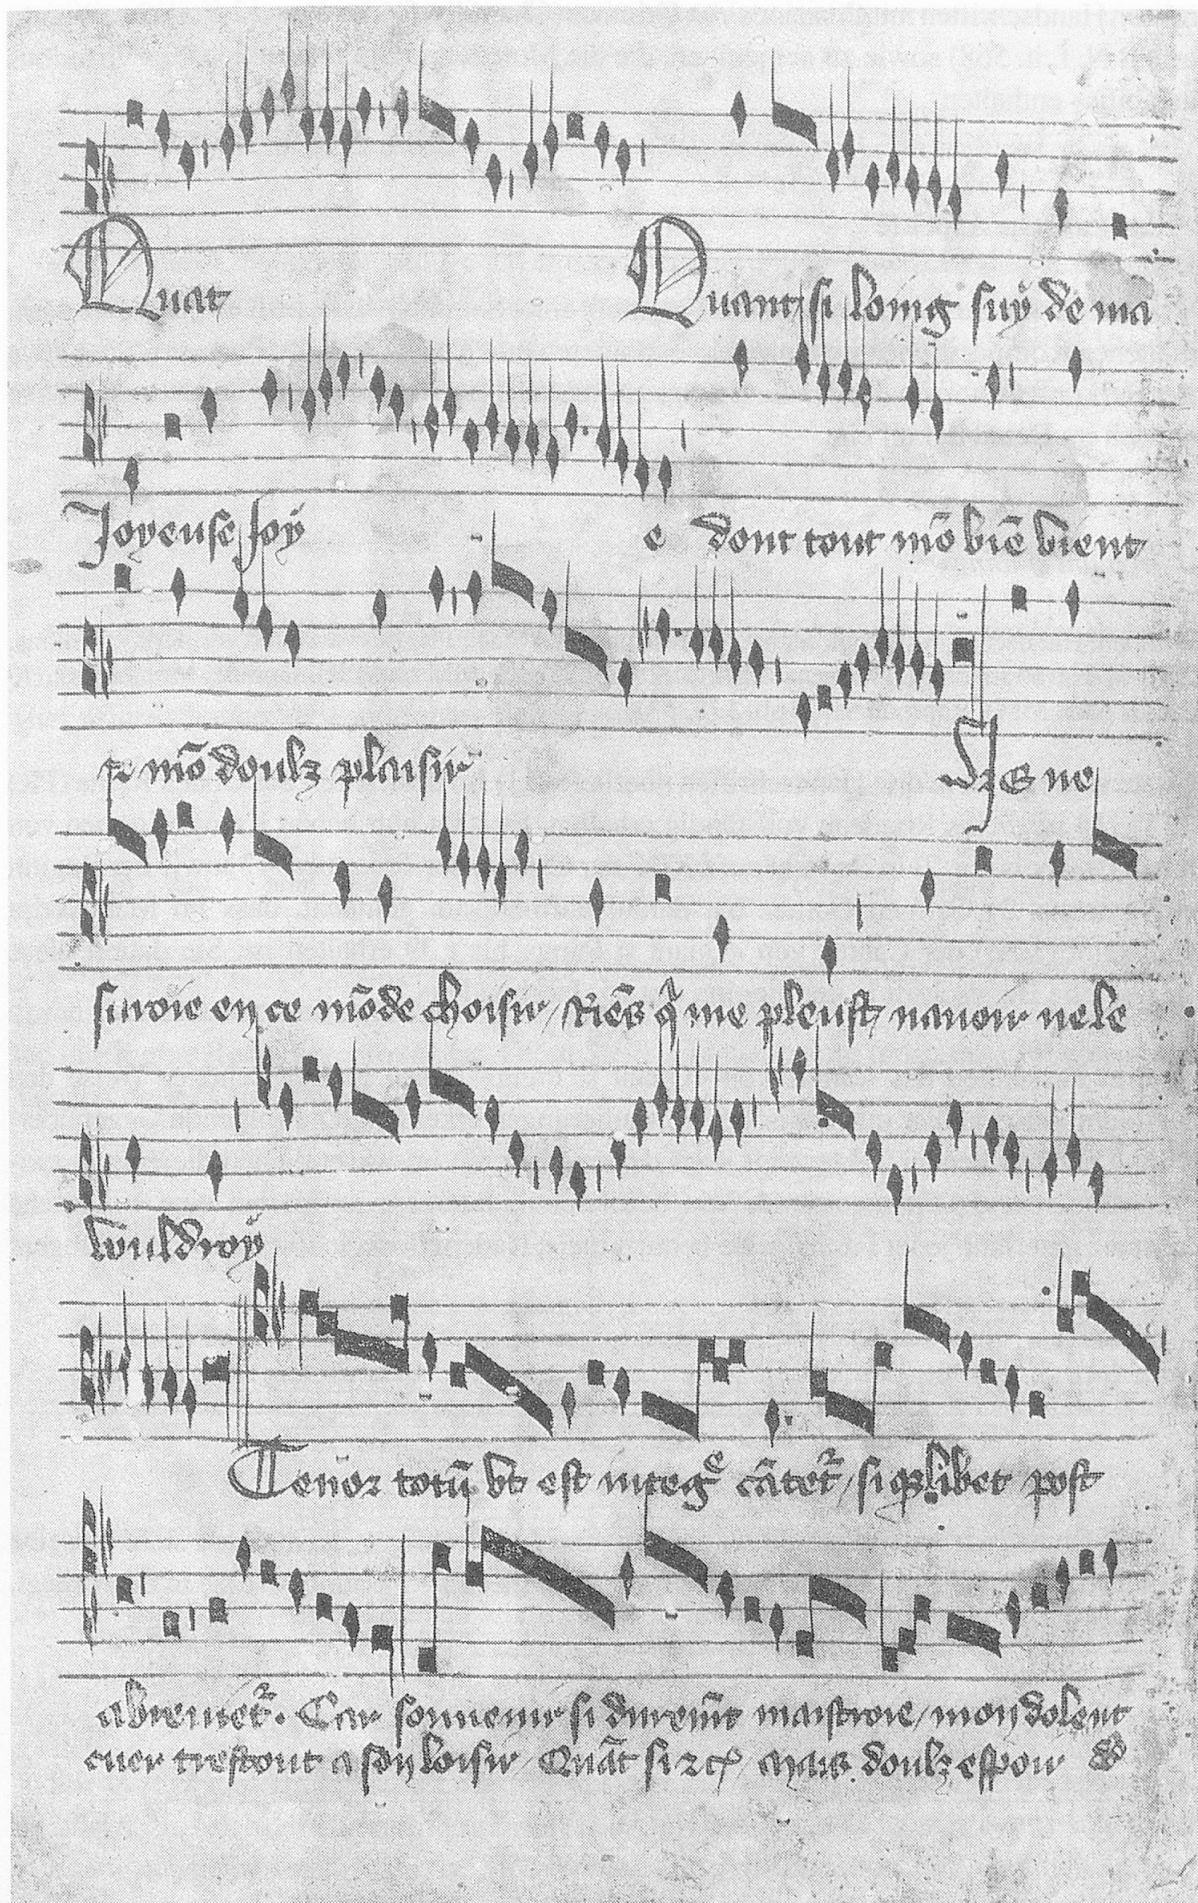 Quāt Quant si loing suy de ma
Joyeuse joy e dont tout mō biē vient
et mō doulz plaisir Je ne
sauroie en ce mōde choisir / Riēs q̄ me pleust / n'avoir ne le
vouldroy
Tenor totū ut est integ cātet / si quilibet post
abreuiet. Car souuenir si durem̄t maistroie / mon dolent
cuer trestout a son loisir / Quāt si &c Mais doulz espoir